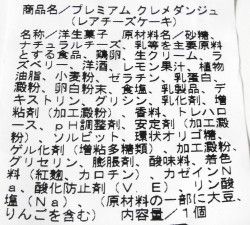 商品名／プレミアム クレメダンジュ
（レアチーズケーキ）
名称／洋生菓子 原材料名／砂糖、
ナチュラルチーズ、乳等を主要原料
とする食品、鶏卵、生クリーム、ラ
ズベリー、洋酒、レモン果汁、植物
油脂、小麦粉、ゼラチン、乳蛋白、
澱粉、卵白粉末、食塩、乳製品、デ
キストリン、グリシン、乳化剤、増
粘剤（加工澱粉）、香料、トレハロ
ース、ｐＨ調整剤、安定剤（加工澱
粉）、ソルビット、環状オリゴ糖、
ゲル化剤（増粘多糖類）、加工澱粉、
グリセリン、膨脹剤、酸味料、着色
料（紅麹、カロチン）、カゼインＮ
ａ、酸化防止剤（Ｖ．Ｅ）、リン酸
塩（Ｎａ）、（原材料の一部に大豆、
りんごを含む） 内容量／１個